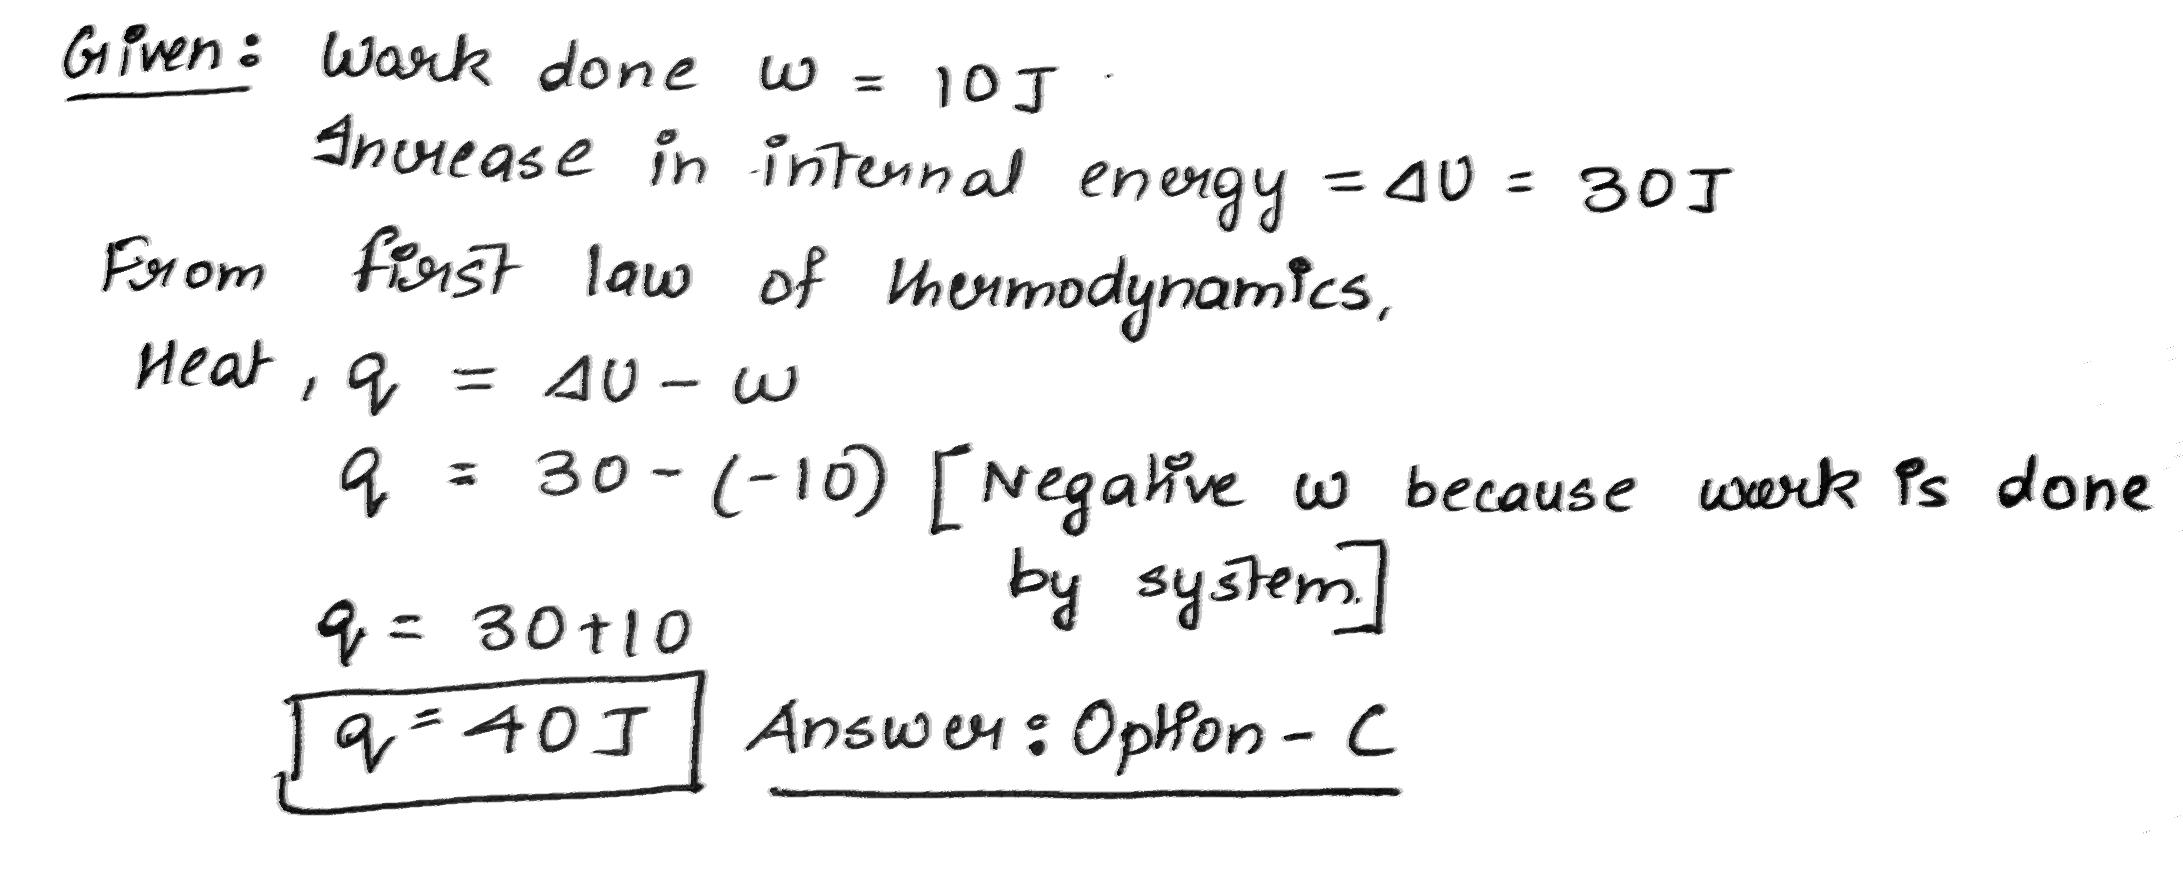 Given: Work done w = 10J
Increase in internal energy = ΔU = 30J
From first law of thermodynamics,
Heat, q = ΔU - w
q = 30 - (-10) [Negative w because work is done
by system.]
q = 30+10
q = 40J Answer: Option - C